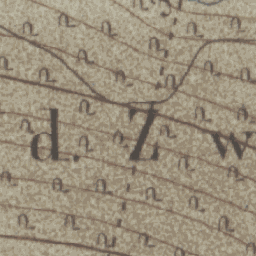 d. Z w